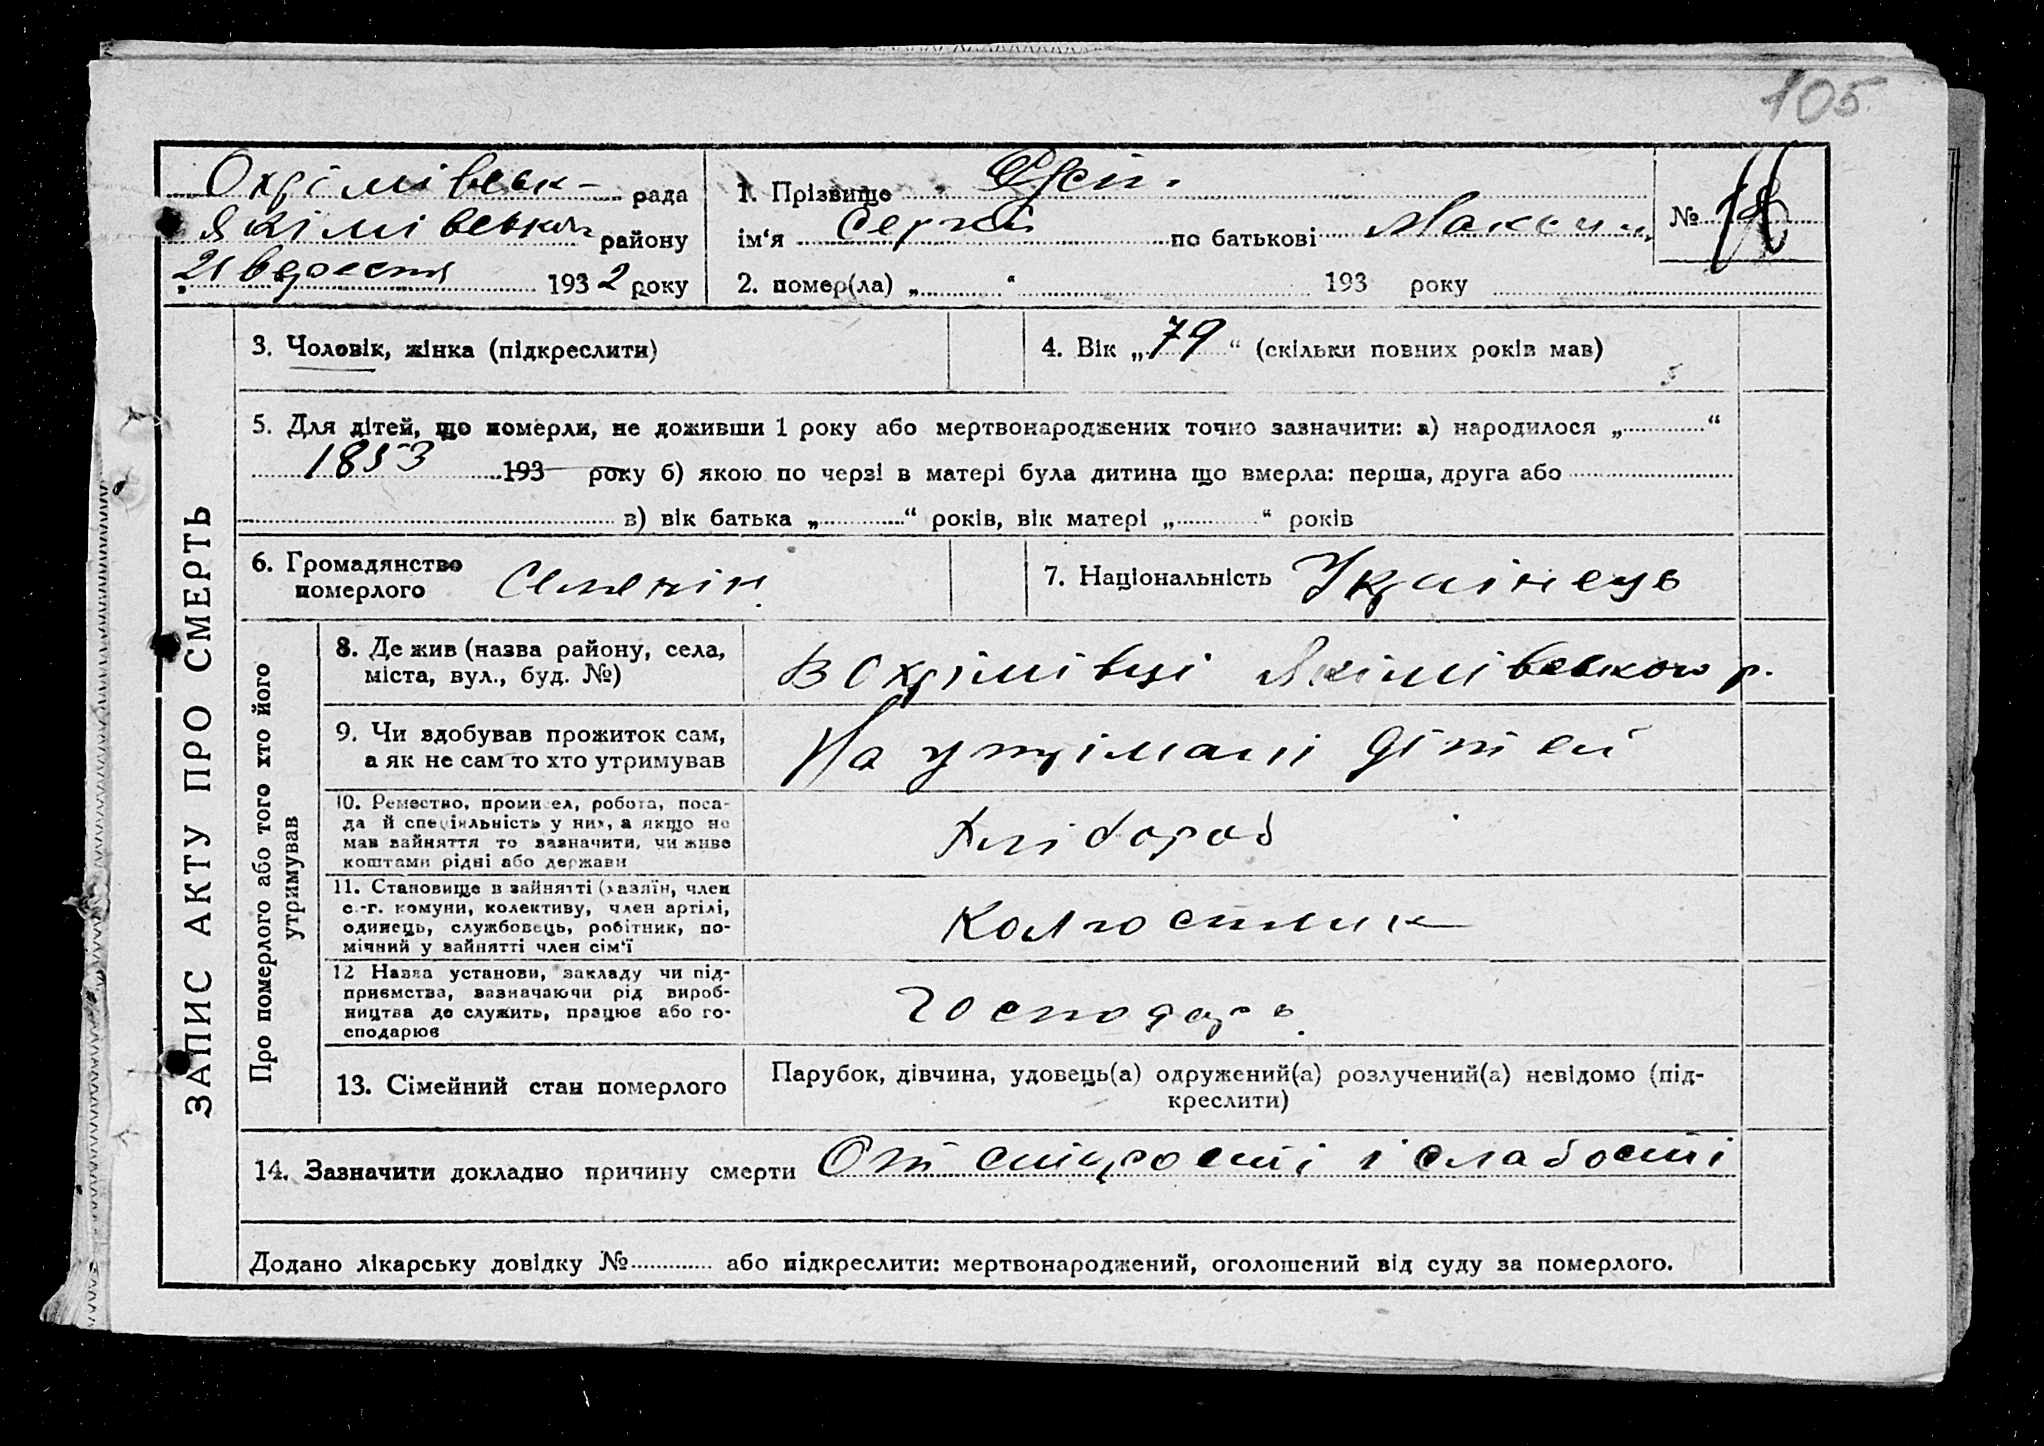 105
Охрімівськ- рада
Якімівськог району
„21 вересня 1932 року
1. Прізвище
ім‘я Сергій по батькові Максим.
№
2. помер(ла) „ “ 193 року
ЗАПИС АКТУ ПРО СМЕРТЬ
3. Чоловік, жінка (підкреслити)
4. Вік „79“ (скільки повних років мав)
5. Для дітей, що померли, не доживши 1 року або мертвонароджених точно зазначити: а) народилося „ “
1853 193 року б) якою по черзі в матері була дитина що вмерла: перша, друга або
в) вік батька „ “ років, вік матері „ “ років
6. Громадянство
померлого
7. Національність Українець
Про померлого або того хто його
утримував
8. Де жив (назва району, села,
міста, вул., буд. №)
В Охрімівці Якімівського р.
9. Чи здобував прожиток сам,
а як не сам то хто утримував
На утрімані дітей
10. Ремество, промисел, робота, поса-
да й спеціяльність у них, а якщо не
мав зайняття то зазначити, чи живе
коштами рідні або держави
Хлібороб
11. Становище в зайнятті (хазяїн, член
с.-г. комуни, колективу, член артілі,
одинець, службовець, робітник, по-
мічний у зайнятті член сім‘ї
Колгоспник
12 Назва установи, закладу чи під-
приємства, зазначаючи рід вироб-
ництва де служить, працює або го-
сподарює
Господарь
13. Сімейний стан померлого
Парубок, дівчина, удовець(а) одружений(а) розлучений(а) невідомо (під-
креслити)
14. Зазначити докладно причину смерти От старості і слабості
Додано лікарську довідку № або підкреслити: мертвонароджений, оголошений від суду за померлого.